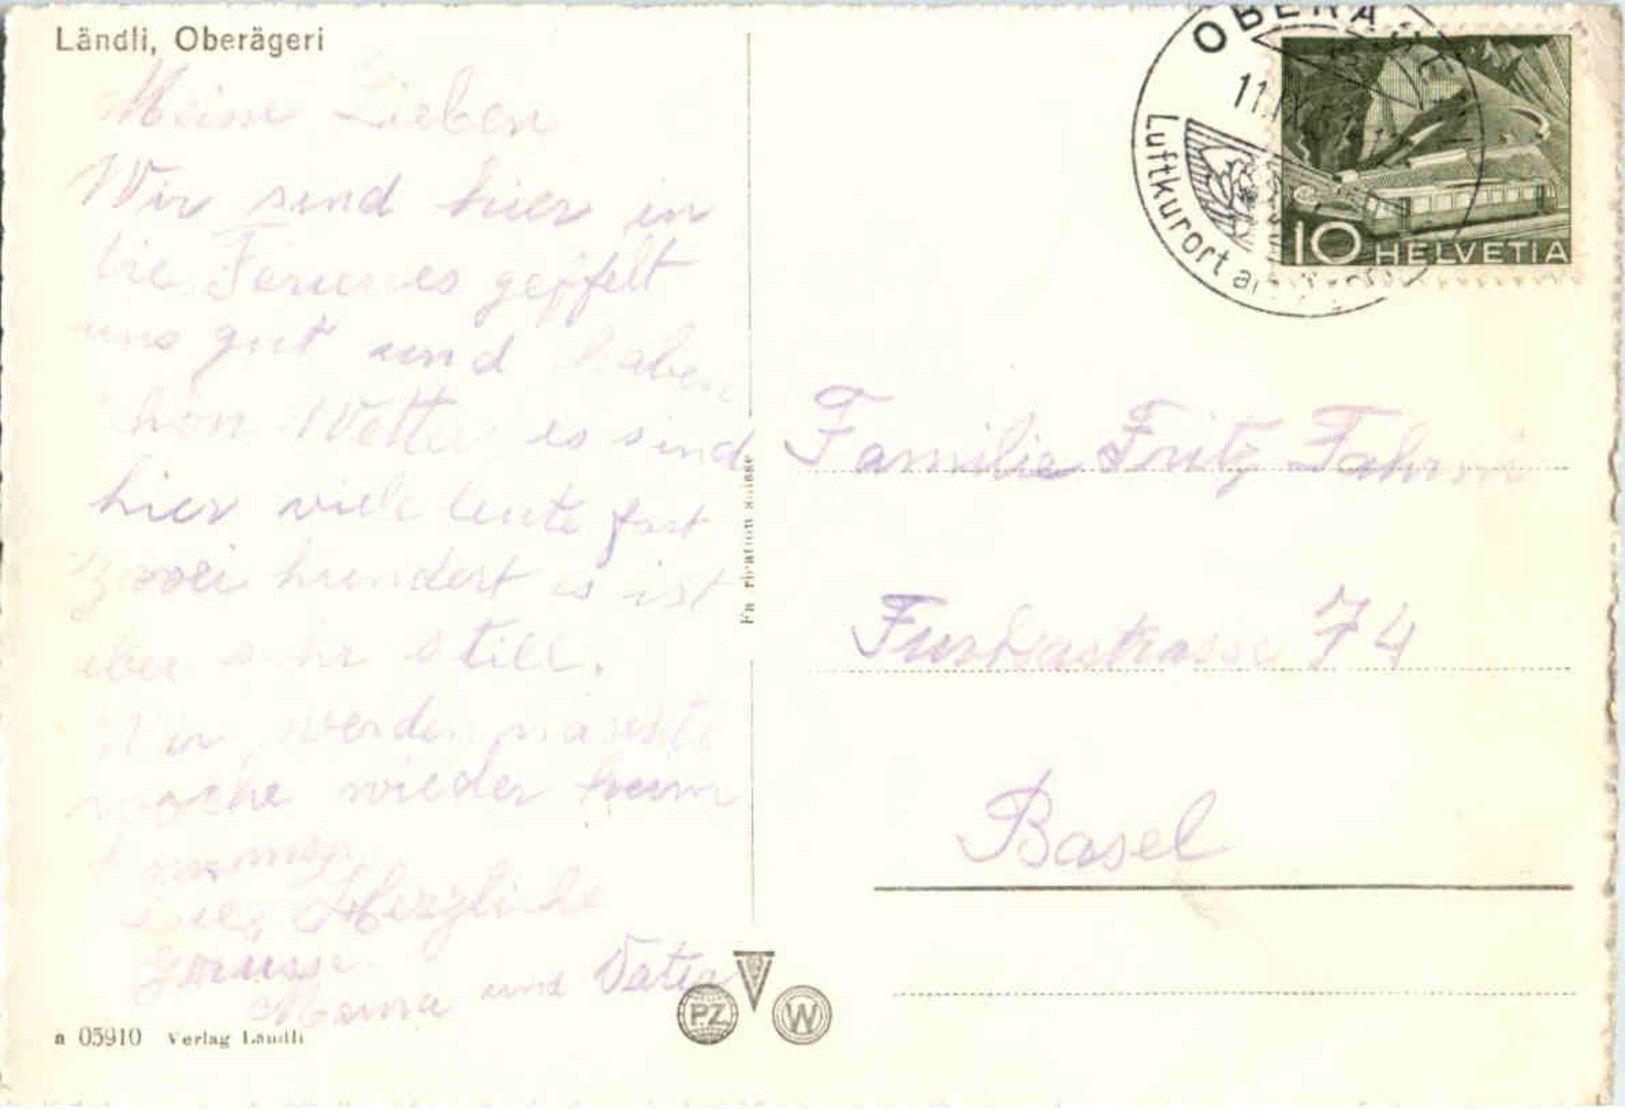 Ländli, Oberägeri
Meine Lieben
Wir sind hier in
die Ferien es gefelt
uns gut und haben
schön Wetter es sind
hier viele leute fast
zwei hundert es ist
aber sehr still.
Wir werden nächste
woche wieder heim
kommen
Herzliche
grüsse
Mama und Vater
a 05910 Verlag Ländli
Fabrication suisse
PZ
W
OBERÄ
11.
Luftkurort a
10 HELVETIA
Familie Fritz Fahrni
Furkastrasse 74
Basel